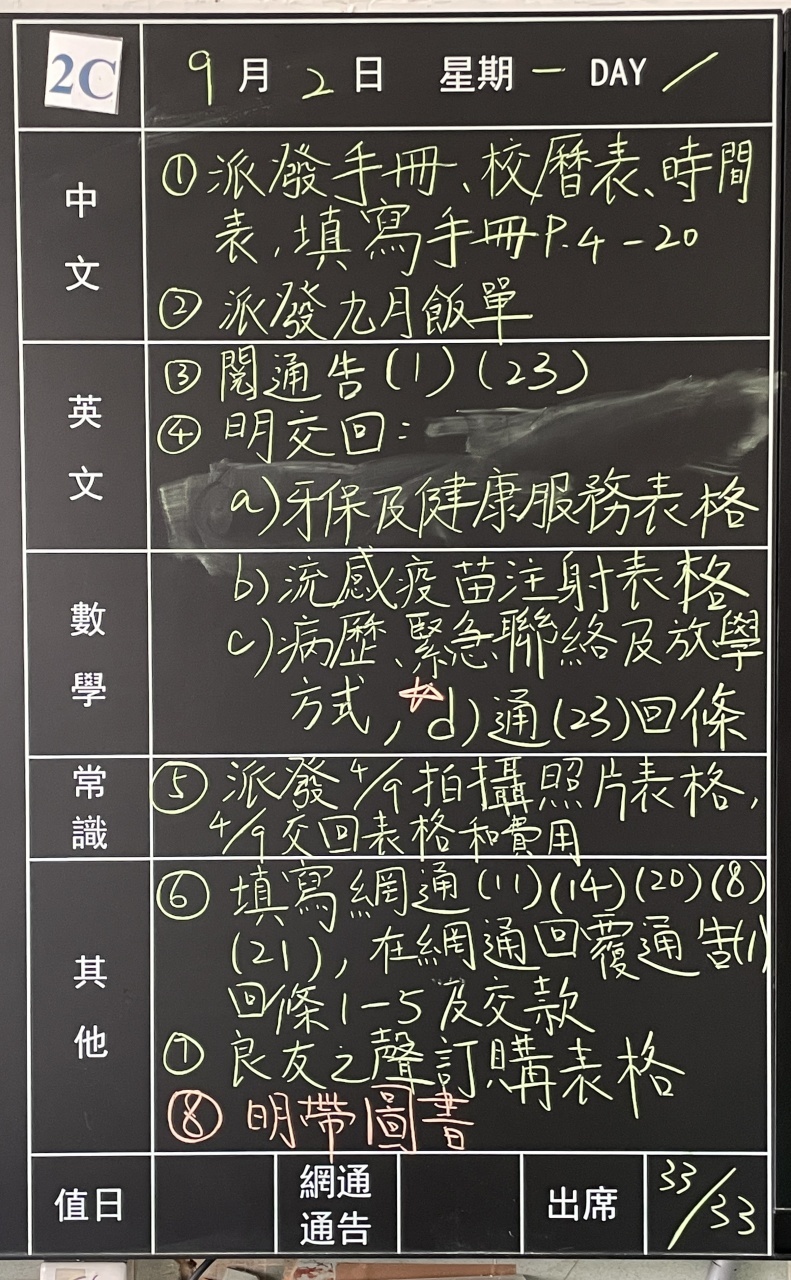 2C 9月2日 星期一 DAY /
中文
①派發手冊、校曆表、時間
表,填寫手冊P.4-20
②派發九月飯單
英文
③閱通告(1)(23)
④明交回:
a)牙保及健康服務表格
數學
b)流感疫苗注射表格
c)病歷、緊急聯絡及放學
方式,☆d)通(23)回條
常識
⑤派發4/9拍攝照片表格,
4/9交回表格和費用
其他
⑥填寫網通(11)(14)(20)(8)
(21),在網通回覆通告(1)
回條1-5及交款
⑦良友之聲訂購表格
⑧明帶圖書
值日 網通通告 出席 33/33